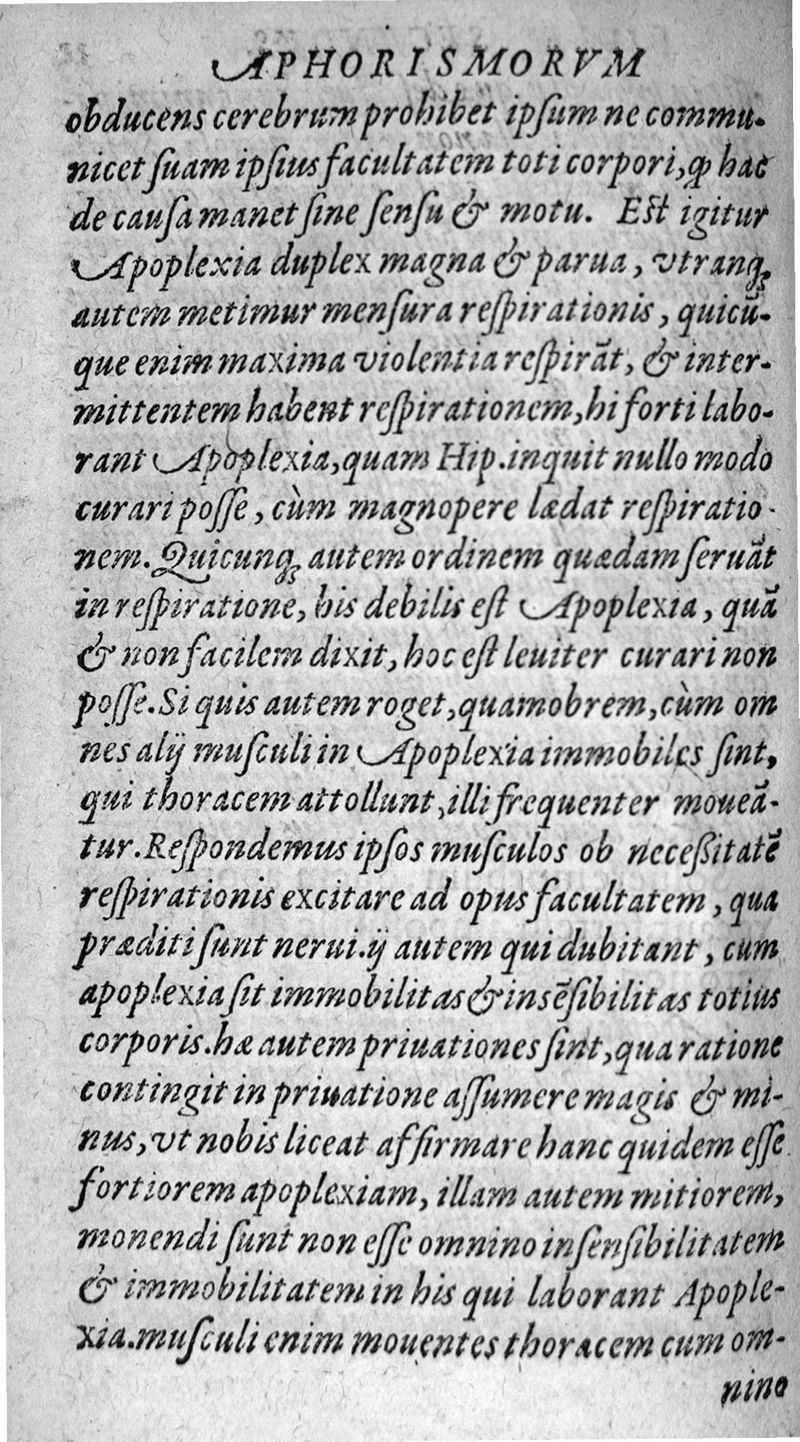 APHORISMORVM
obducens cerebrum prohibet ipſum ne commu-
nicet ſuam ipſius facultatem toti corpori, ꝙ hac
de cauſa manet ſine ſenſu & motu. Eſt igitur
Apoplexia duplex magna & parua, vtranq́;
autem metimur menſura reſpirationis, quicũ-
que enim maxima violentia reſpirãt, & inter-
mittentem habent reſpirationem, hi forti labo-
rant Apoplexia, quam Hip. inquit nullo modo
curari poſſe, cùm magnopere lædat reſpiratio-
nem. Quicunq; autem ordinem quædam ſeruãt
in reſpiratione, his debilis eſt Apoplexia, quã
& non facilem dixit, hoc eſt leuiter curari non
poſſe. Si quis autem roget, quamobrem, cùm om
nes alij muſculi in Apoplexia immobiles ſint,
qui thoracem attollunt, illi frequenter moueã-
tur. Reſpondemus ipſos muſculos ob neceßitatẽ
reſpirationis excitare ad opus facultatem, qua
præditi ſunt nerui. ij autem qui dubitant, cum
apoplexia ſit immobilitas & inſẽſibilitas totius
corporis. hæ autem priuationes ſint, qua ratione
contingit in priuatione aſſumere magis & mi-
nus, vt nobis liceat affirmare hanc quidem eſſe
fortiorem apoplexiam, illam autem mitiorem,
monendi ſunt non eſſe omnino inſenſibilitatem
& immobilitatem in his qui laborant Apople-
xia. muſculi enim mouentes thoracem cum om-
nino